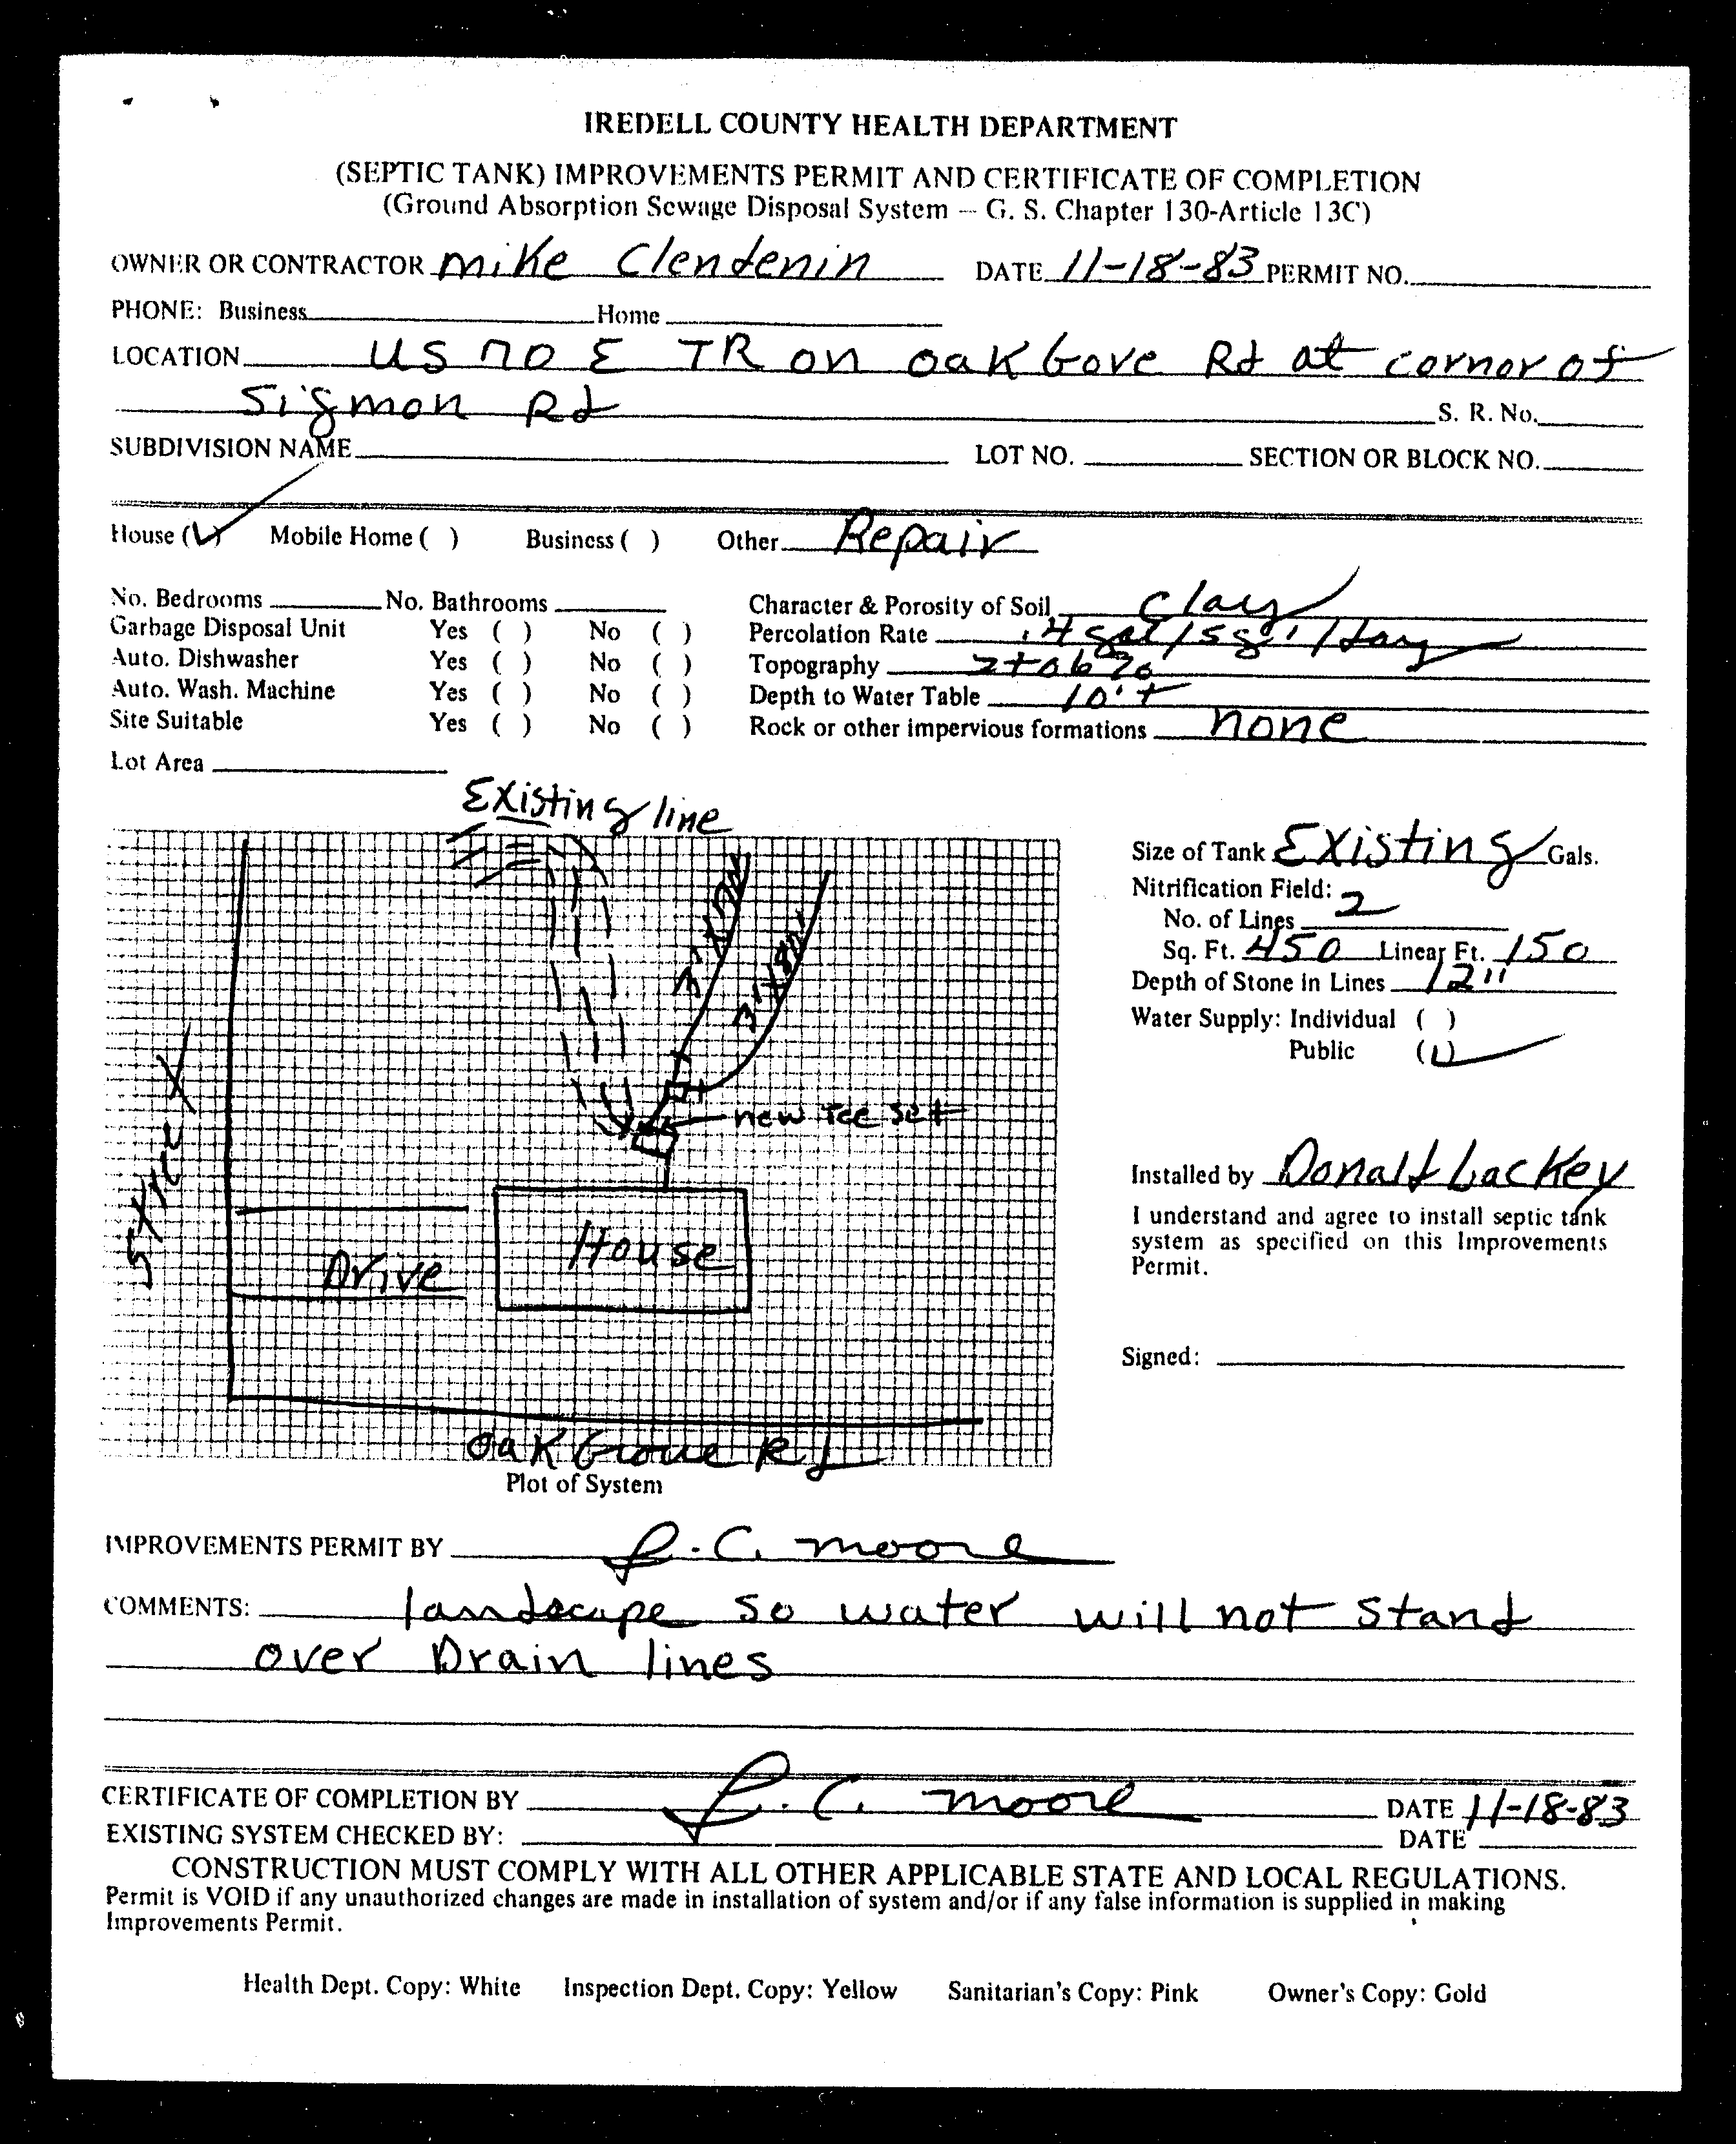 IREDELL COUNTY HEALTH DEPARTMENT
(SEPTIC TANK) IMPROVEMENTS PERMIT AND CERTIFICATE OF COMPLETION
(Ground Absorption Sewage Disposal System – G. S. Chapter 130-Article 13C)
OWNER OR CONTRACTOR mike Clendenin DATE 11-18-83 PERMIT NO.
PHONE: Business Home
LOCATION US 70 E TR on Oak Gove Rd at cornor of
Sigmon Rd S. R. No.
SUBDIVISION NAME LOT NO. SECTION OR BLOCK NO.
House (✓) Mobile Home ( ) Business ( ) Other Repair
No. Bedrooms No. Bathrooms Character & Porosity of Soil Clay
Garbage Disposal Unit Yes ( ) No ( ) Percolation Rate .4 gal/sq'/day
Auto. Dishwasher Yes ( ) No ( ) Topography 2 to 6%
Auto. Wash. Machine Yes ( ) No ( ) Depth to Water Table 10'+
Site Suitable Yes ( ) No ( ) Rock or other impervious formations none
Lot Area
Existing line
Size of Tank Existing Gals.
Nitrification Field:
No. of Lines 2
Sq. Ft. 450 Linear Ft. 150
Depth of Stone in Lines 12"
Water Supply: Individual ( )
Public (✓)
3' X 70'
3' X 80'
new Tee set
Installed by Donald Lackey
I understand and agree to install septic tank
system as specified on this Improvements
Permit.
House
Drive
Signed:
Oak Grove Rd
Plot of System
IMPROVEMENTS PERMIT BY L. C. Moore
COMMENTS: landscape so water will not stand
over Drain lines
CERTIFICATE OF COMPLETION BY L. C. Moore DATE 11-18-83
EXISTING SYSTEM CHECKED BY: DATE
CONSTRUCTION MUST COMPLY WITH ALL OTHER APPLICABLE STATE AND LOCAL REGULATIONS.
Permit is VOID if any unauthorized changes are made in installation of system and/or if any false information is supplied in making
Improvements Permit.
Health Dept. Copy: White Inspection Dept. Copy: Yellow Sanitarian's Copy: Pink Owner's Copy: Gold